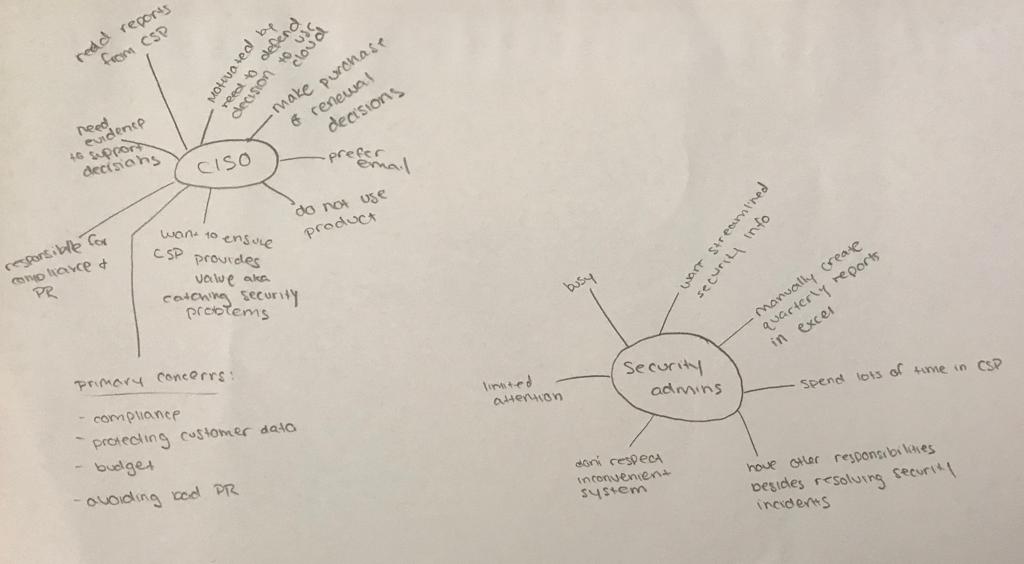 read reports
from CSP
motivated by
need to defend
decision to use
cloud
make purchase
& renewal
decisions
need
evidence
to support
decisions
CISO
prefer
email
do not use
product
responsible for
compliance &
PR
want to ensure
CSP provides
value aka
catching security
problems
primary concerns:
- compliance
- protecting customer data
- budget
- avoiding bad PR
busy
want streamlined
security info
manually create
quarterly reports
in excel
Security
admins
limited
attention
spend lots of time in CSP
don't respect
inconvenient
system
have other responsibilities
besides resolving security
incidents